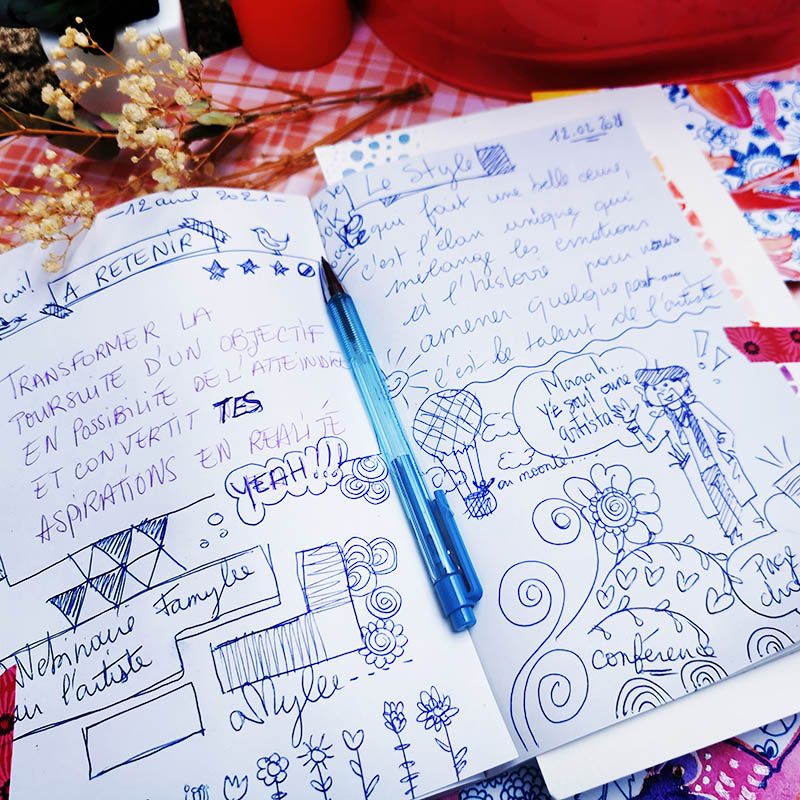 - 12 avril 2021 -
cui!
A RETENIR
TRANSFORMER LA
POURSUITE D'UN OBJECTIF
EN POSSIBILITÉ DE L'ATTEINDRE
ET CONVERTIT TES
ASPIRATIONS EN REALITÉ
YEAH!!!
Webinaire Famylee
l'artiste
aMylee
12.02.2021
Le Style
qui fait une belle œuvre,
c'est l'élan unique, qui
mélange les émotions
à l'histoire pour nous
amener quelque part
c'est le talent de l'artiste
Maaah...
yé soui oune
artista
au monde!
Page
du
conférence